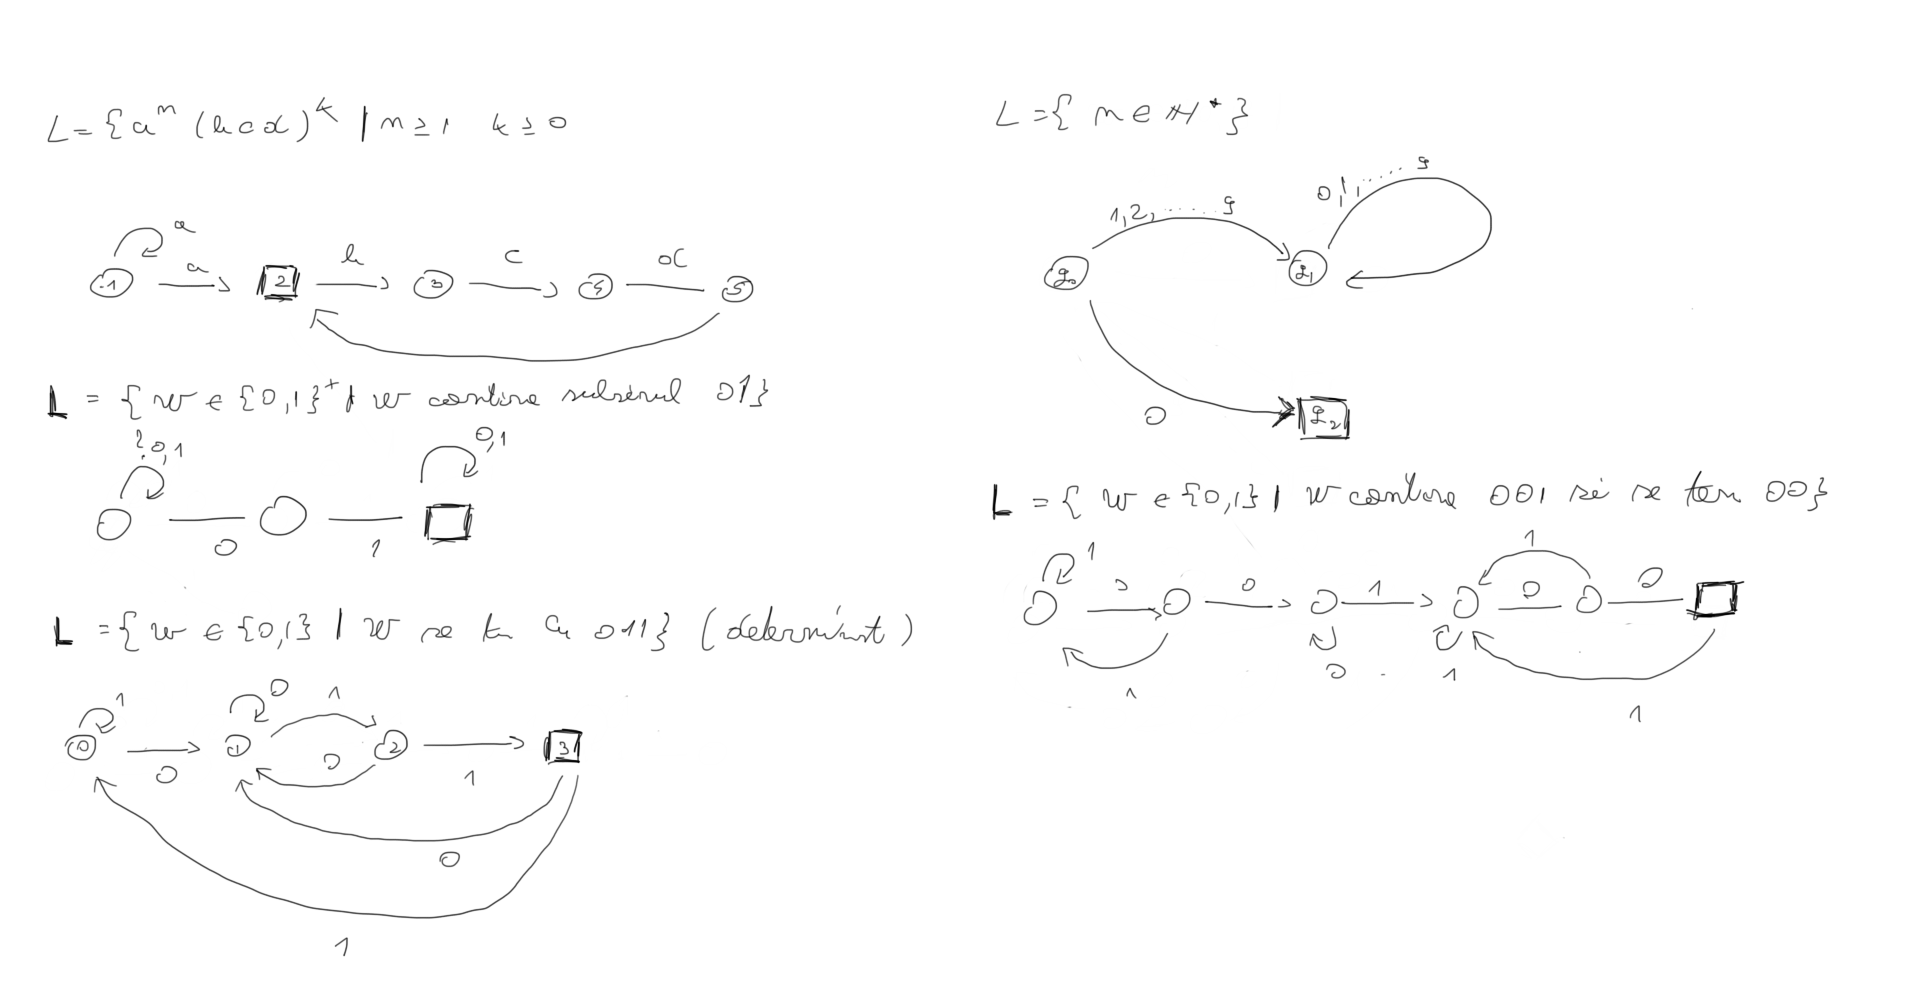 L = { a^n (bcd)^k | n ≥ 1 k ≥ 0
a
a b c d
1 2 3 4 5
L = { w ∈ {0,1}^+ | w contine subsirul 01}
? 0,1 0,1
0 1
L = { w ∈ {0,1} | w se ter cu 011} (determinist)
1 0 1
0 1 2 3
0 0 1
0
1
L = { n ∈ N* }
1,2, ..... 9 0,1, ..... 9
q0 q1
0 q2
L = { w ∈ {0,1} | w contine 001 si se ter 00}
1 1
0 0 1 0 0
1 0 1 1